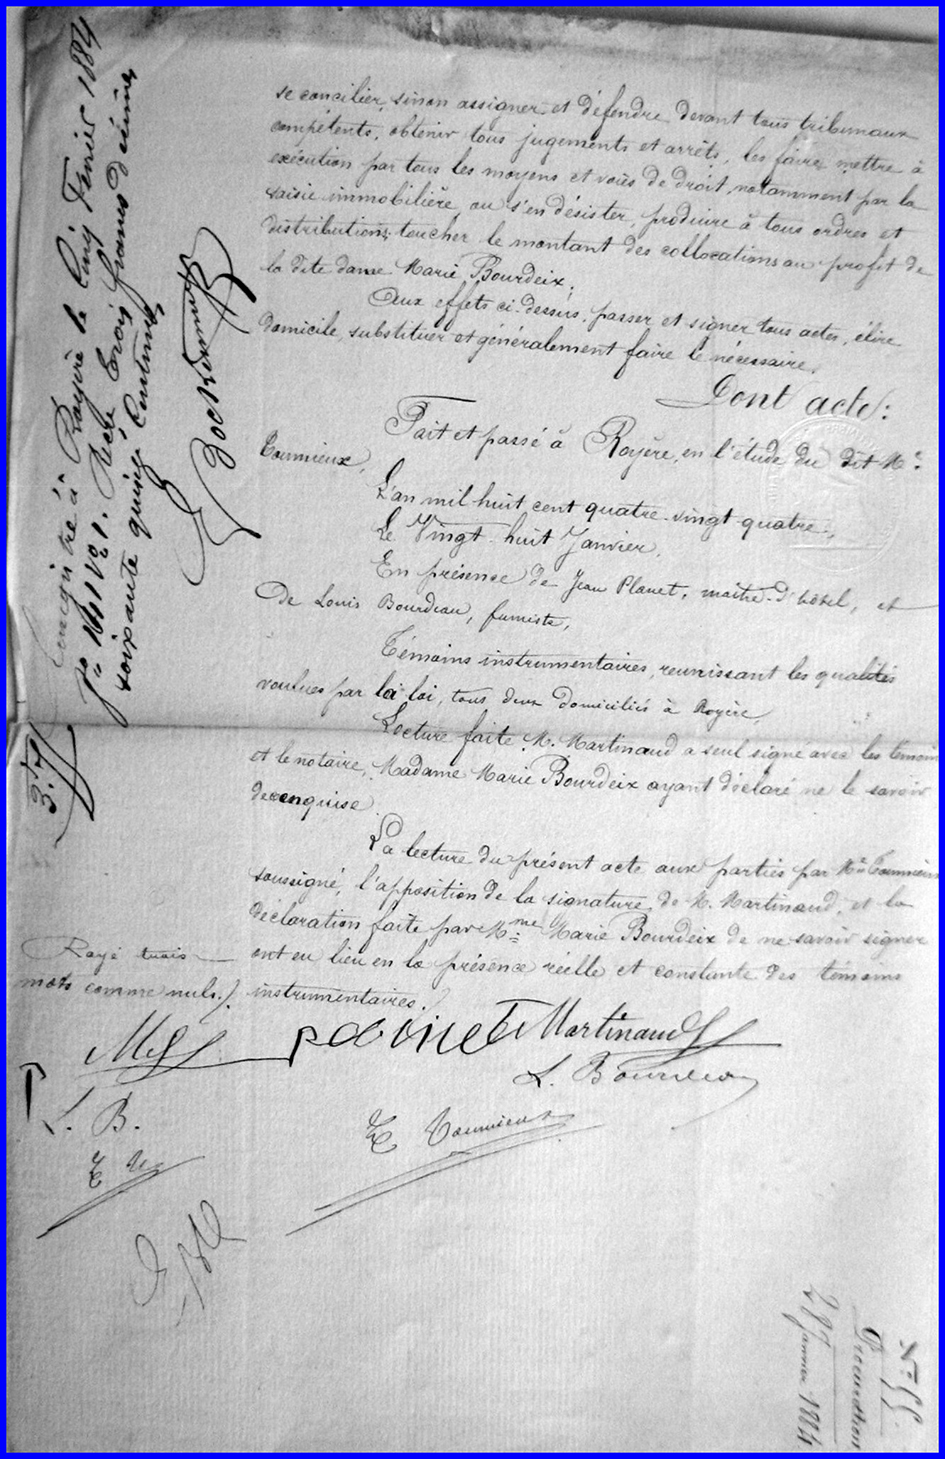 se concilier, sinon assigner et défendre devant tous tribunaux
compétents, obtenir tous jugements et arrêts, les faire mettre à
exécution par tous les moyens et voies de droit, notamment par la
saisie immobilière ou s'en désister, produire à tous ordres et
distributions, toucher le montant des collocations au profit de
la dite dame Marie Bourdeix.
Aux effets ci-dessus, passer et signer tous actes, élire
domicile, substituer et généralement faire le nécessaire.
Dont acte:
Fait et passé à Royère, en l'étude du dit Me
Toumieux,
L'an mil huit cent quatre-vingt-quatre,
Le Vingt-huit Janvier,
En présence de Jean Planet, maître-d'hôtel, et
De Louis Bourdeau, fumiste,
Témoins instrumentaires, reunissant les qualités
voulues par la loi, tous deux domiciliés à Royère,
Lecture faite M. Martinaud a seul signé avec les témoins
et le notaire, Madame Marie Bourdeix ayant déclaré ne le savoir
de enquise
La lecture du présent acte aux parties par Me Toumieux
soussigné, l'apposition de la signature de M. Martinaud, et la
déclaration faite par Mme Marie Bourdeix de ne savoir signer
ont eu lieu en la présence réelle et constante des témoins
instrumentaires./.
Rayé trois
mots comme nuls./.
Martinaud
L. Bourdeau
L. B.
T Toumieux
Enregistré à Royère le cinq Fevrier 1884
fo 16 Vo c 1. Reçu trois francs décimes
soixante quinze centimes
3.75
No 55
Procuration
28 Janvier 1884